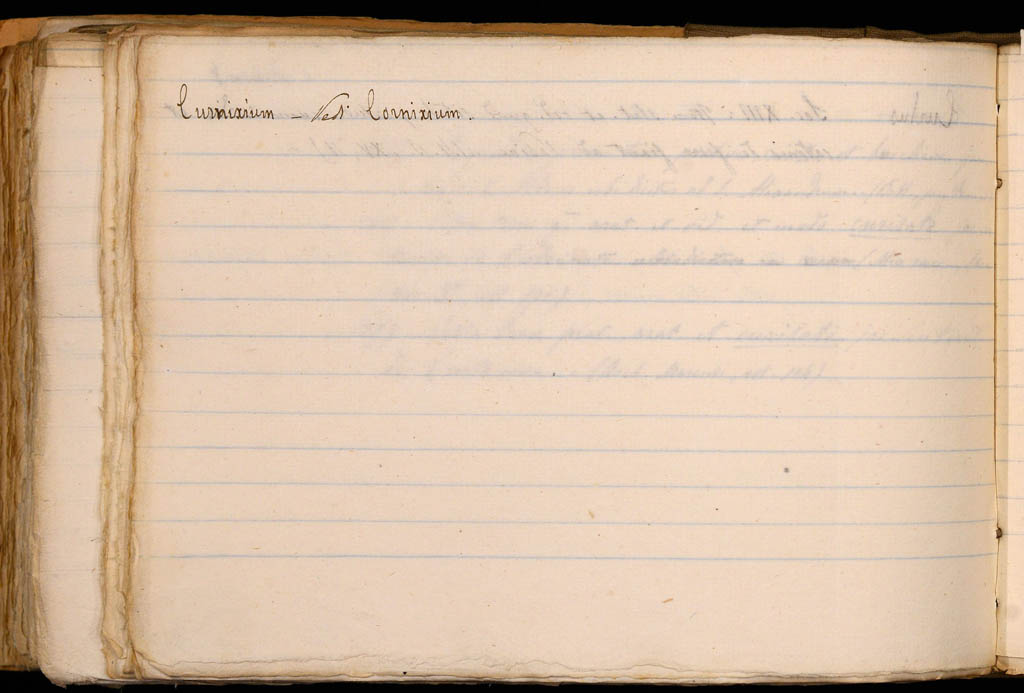 Curnixium - Vedi Cornixium.